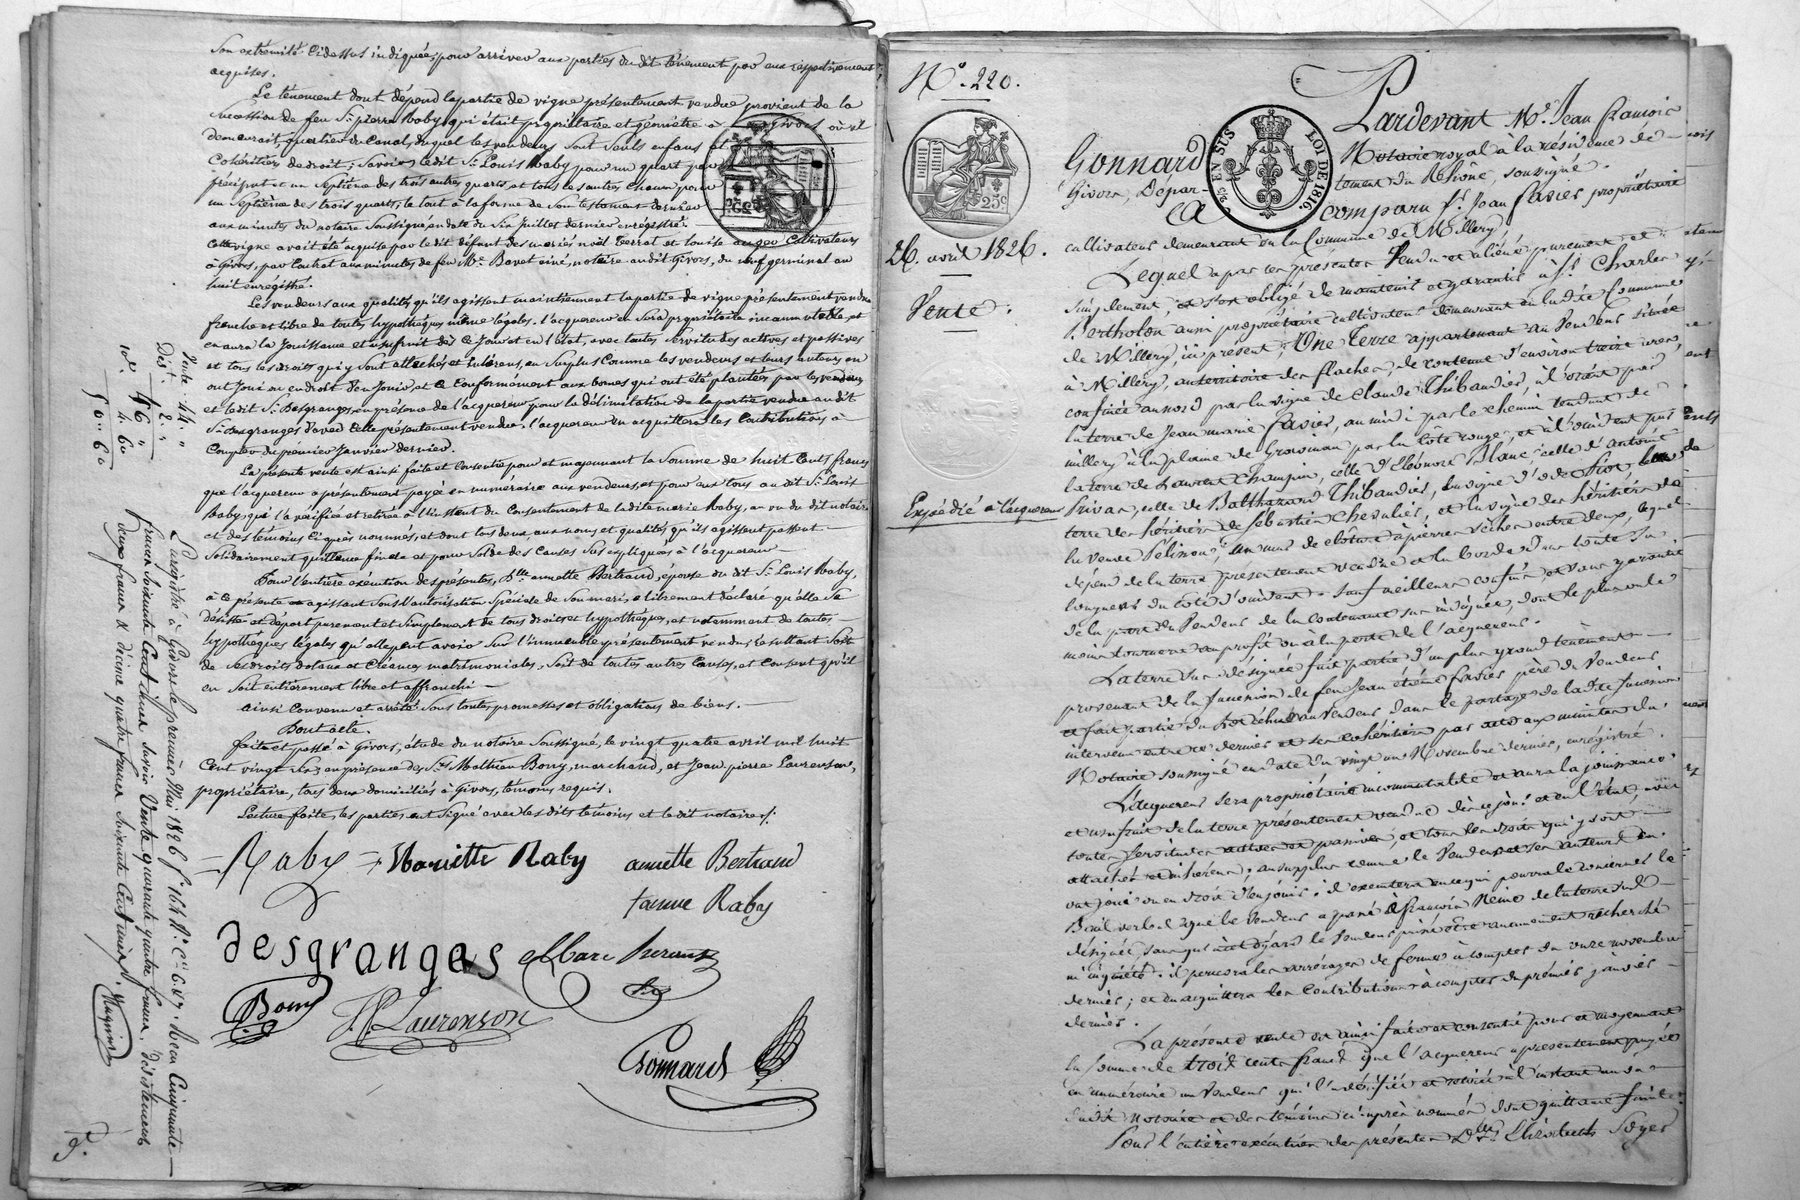 Son extrémité Cidessus indiquée, pour arriver aux parties du dit ténement par eux respectivement
acquises.
Le ténement dont dépend la partie de vigne présentement vendue provient de la
Succession de feu Sr. pierre Raby, qui était propriétaire et géomètre à Givors où il
demeurait, quartier du Canal, duquel les vendeurs Sont Seuls enfans et
Cohéritiers de droit; Savoir: ledit Sr. Louis Raby pour un quart par
préciput et un Septième des trois autres quarts, et tous les autres Chacun pour
un Septième des trois quarts, le tout à la forme de Son testament dernier
aux minutes du notaire Soussigné, en date du Six Juillet dernier enregistré.
Cette vigne avait été acquise par le dit défunt des mariés noël Terrat et Louise Cultivateurs
à Givors, par Contrat aux minutes de feu Me. Bovet ainé, notaire audit Givors, du neuf germinal an
huit enregistré.
Les vendeurs aux qualités qu'ils agissent maintiennent la partie de vigne présentement vendue
franche et libre de toutes hypothèques même légales. l'acquereur en Sera propriétaire incommutable, et
en aura la Jouissance et usufruit dès ce Jour et en l'état, avec toutes Servitudes actives et passives
et tous les droits qui y Sont attachés et inhérens, au Surplus Comme les vendeurs et leurs auteurs en
ont Joui ou en droit d'en Jouir, et ce Conformément aux bornes qui ont été plantées par les vendeurs
et le dit Sr. Desgranges, en présence de l'acquereur, pour la délimitation de la partie vendue au dit
Sr. Desgranges d'avec Celle présentement vendue. l'acquereur en acquittera les Contributions à
Compter du premier Janvier dernier.
La présente vente est ainsi faite et Consentie pour et moyennant la Somme de huit Cents francs
que l'acquereur a présentement payée en numéraire aux vendeurs, et pour eux tous au dit Sr. Louis
Raby, qui l'a vérifiée et retirée à l'instant du Consentement de ladite marie Raby, au vu du dit notaire
et des témoins Ciaprès nommés, et dont tous deux, aux noms et qualités qu'ils agissent passent
Solidairement quittance finale et pour Solde des Causes Sus expliquées à l'acquereur.
Pour l'entière exécution des présentes, Dlle. annette Bertrand, épouse du dit Sr. Louis Raby,
à ce présente et agissant Sous l'autorisation Spéciale de Son mari, a librement déclaré qu'elle Se
désiste et départ purement et Simplement de tous droits et hypothèques, et notamment de toutes
hypothèques légales qu'elle peut avoir Sur l'immeuble présentement vendu, résultant Soit
de Ses droits dotaux et Créances matrimoniales, Soit de toutes autres Causes, et Consent qu'il
en Soit entièrement libre et affranchi.
ainsi Convenu et arrêté Sous toutes promesses et obligations de biens.
Dont acte.
faite et passé à Givors, étude du notaire Soussigné, le vingt quatre avril mil huit
Cent vingt Six, en présence des Srs. Mathieu Bony, marchand, et Jean pierre Laurenson,
propriétaire, tous deux domiciliés à Givors, témoins requis.
Lecture faite, les parties ont Signé avec les dits témoins et le dit notaire.
Raby Mariette Raby annette Bertrand
Raby
desgranges
Bony JP Laurenson
Gonnard
Vente. 44 "
Dist. 2 "
46 "
10e. 4. 60
50 " 60
Enregistré à Givors le premier Mai 1826 fo. 164 Ro. Reçu Cinquante
francs Soixante Centimes Savoir Vente quarante quatre francs, désistement
deux francs et décime quatre francs Soixante Centimes.
No. 220.
25c
26. avril 1826.
Vente.
Expédié à l'acquereur
EN SUS LOI DE 1816.
Pardevant Me. Jean francois
Gonnard Notaire royal à la résidence de
Givors, Dépar- tement du Rhône, soussigné.
A comparu Sr. Jean favier propriétaire
cultivateur demeurant en la Commune de Millery,
Lequel a par ces présentes Vendu et aliéné purement et
simplement, et s'est obligé de maintenir et garantir à Sr. Charles
Bertholon aussi propriétaire cultivateur demeurant en la dite Commune
de Millery, ici présent, Une Terre appartenant au Vendeur située
à Millery, au territoire des flaches, de contenue d'environ treize ares,
confinée au nord par la vigne de Claude Thibaudier, à l'orient par
la terre de Jean marie favier, au midi par le chemin tendant de
millery à la plaine de par la côte rouge, et à l'occident par
la terre de Laurent Champin, celle d'Eléonore Blanc, celle d'antoine
Privas, celle de Balthazard Thibaudier, la vigne d'
terre des héritiers de Sébastien Chevalier, et la vigne des héritiers de
la veuve un mur de clôture à pierres sèches entre deux, lequel
dépend de la terre présentement vendue et la borde sur toute sa
longueur du côté d'occident. Sauf meilleurs confins et sans garantie
de la part du Vendeur de la contenance sus indiquée, dont le plus ou le
moins tournera au profit ou à la perte de l'acquereur.
La terre sus désignée fait partie d'un plus grand ténement
provenant de la succession de feu Jean étienne favier père du Vendeur
et fait partie du lot échu au Vendeur dans le partage de la dite succession
intervenu entre ce dernier et ses cohéritiers par acte aux minutes du
Notaire soussigné en date du vingt un Novembre dernier, enregistré.
L'acquereur sera propriétaire incommutable et aura la jouissance
et usufruit de la terre présentement vendue dès ce jour et en l'état, avec
toutes servitudes actives et passives, et tous les droits qui y sont
attachés et inhérens; au surplus comme le Vendeur et ses auteurs en
ont joui ou en droit d'en jouir: il exécutera en ce qui pourra le concerner le
Bail verbal que le Vendeur a passé à françois Rémo de la terre sus
désignée, sans qu'à cet égard le Vendeur puisse être aucunement recherché
ni inquiété: il percevra les arrérages de ferme à compter du onze novembre
dernier; et en acquittera les contributions à compter du premier janvier
dernier.
La présente vente est ainsi faite et consentie pour et moyennant
la somme de trois cents francs que l'acquereur a présentement payée
en numéraire au Vendeur qui l'a vérifiée et retirée à l'instant au vu
du dit Notaire et des témoins ci après nommés, dont quittance finale.
Pour l'entière exécution des présentes Dlle. Elisabeth Soyer